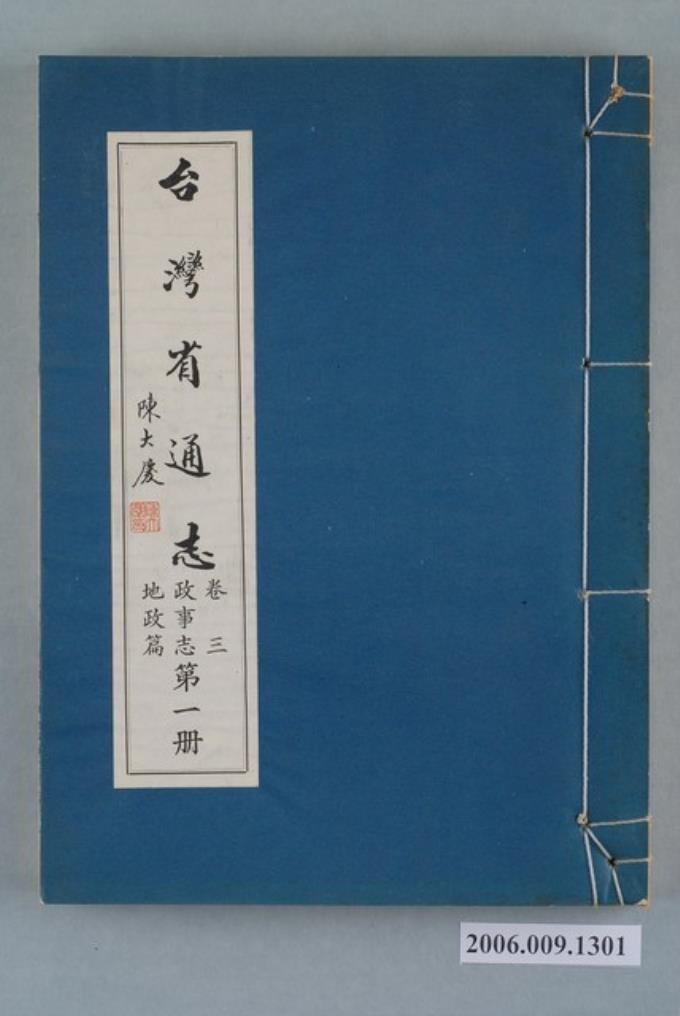 台灣省通志
卷三
政事志
地政篇
第一册
陳大慶
2006.009.1301